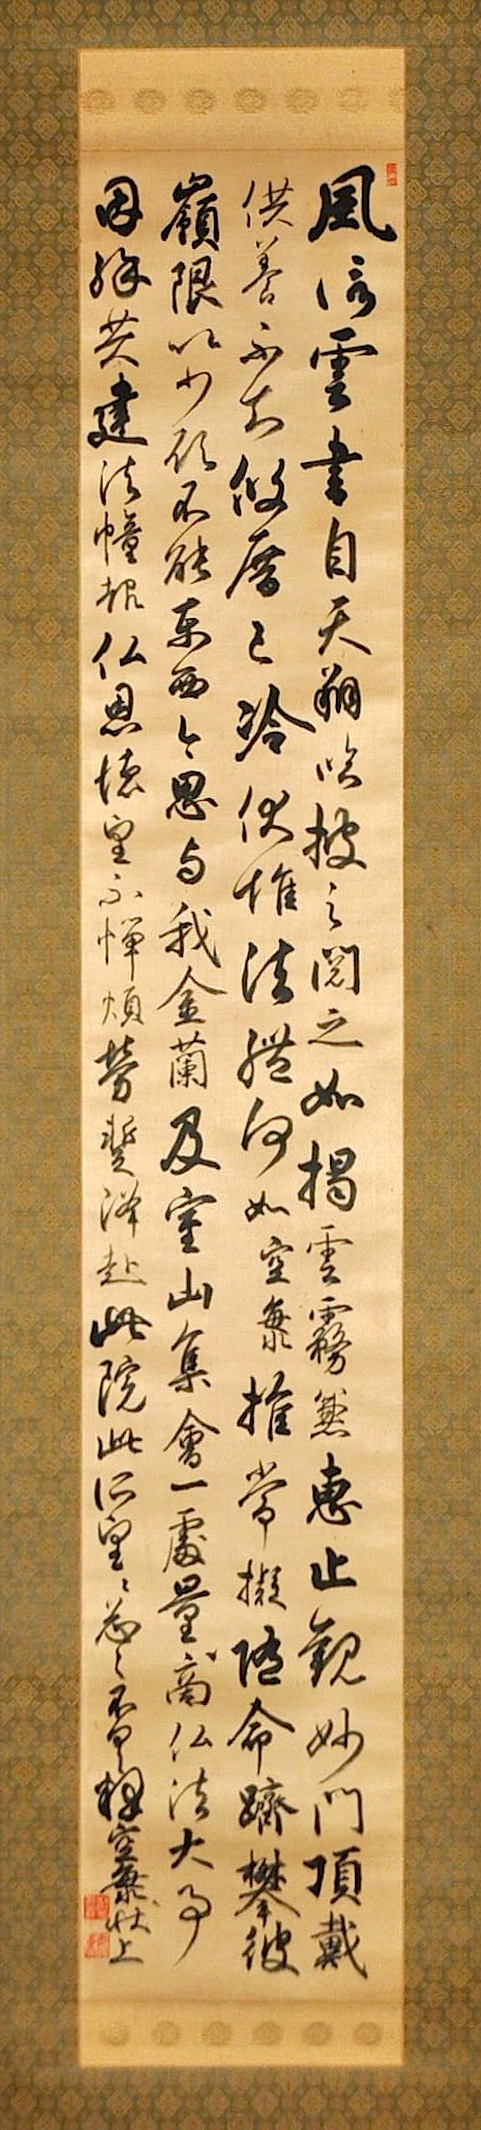 風信雲書自天翔臨披之閲之如揭雲霧兼恵止觀妙門頂戴
供養不知攸厝已冷伏惟法體何如空海推常擬随命躋攀彼
嶺限以少願不能東西今思与我金蘭及室山集會一處量商仏法大事
因縁共建法幢報仏恩徳望不憚煩勞蹔降赴此院此所望々忩々不具釋空海状上